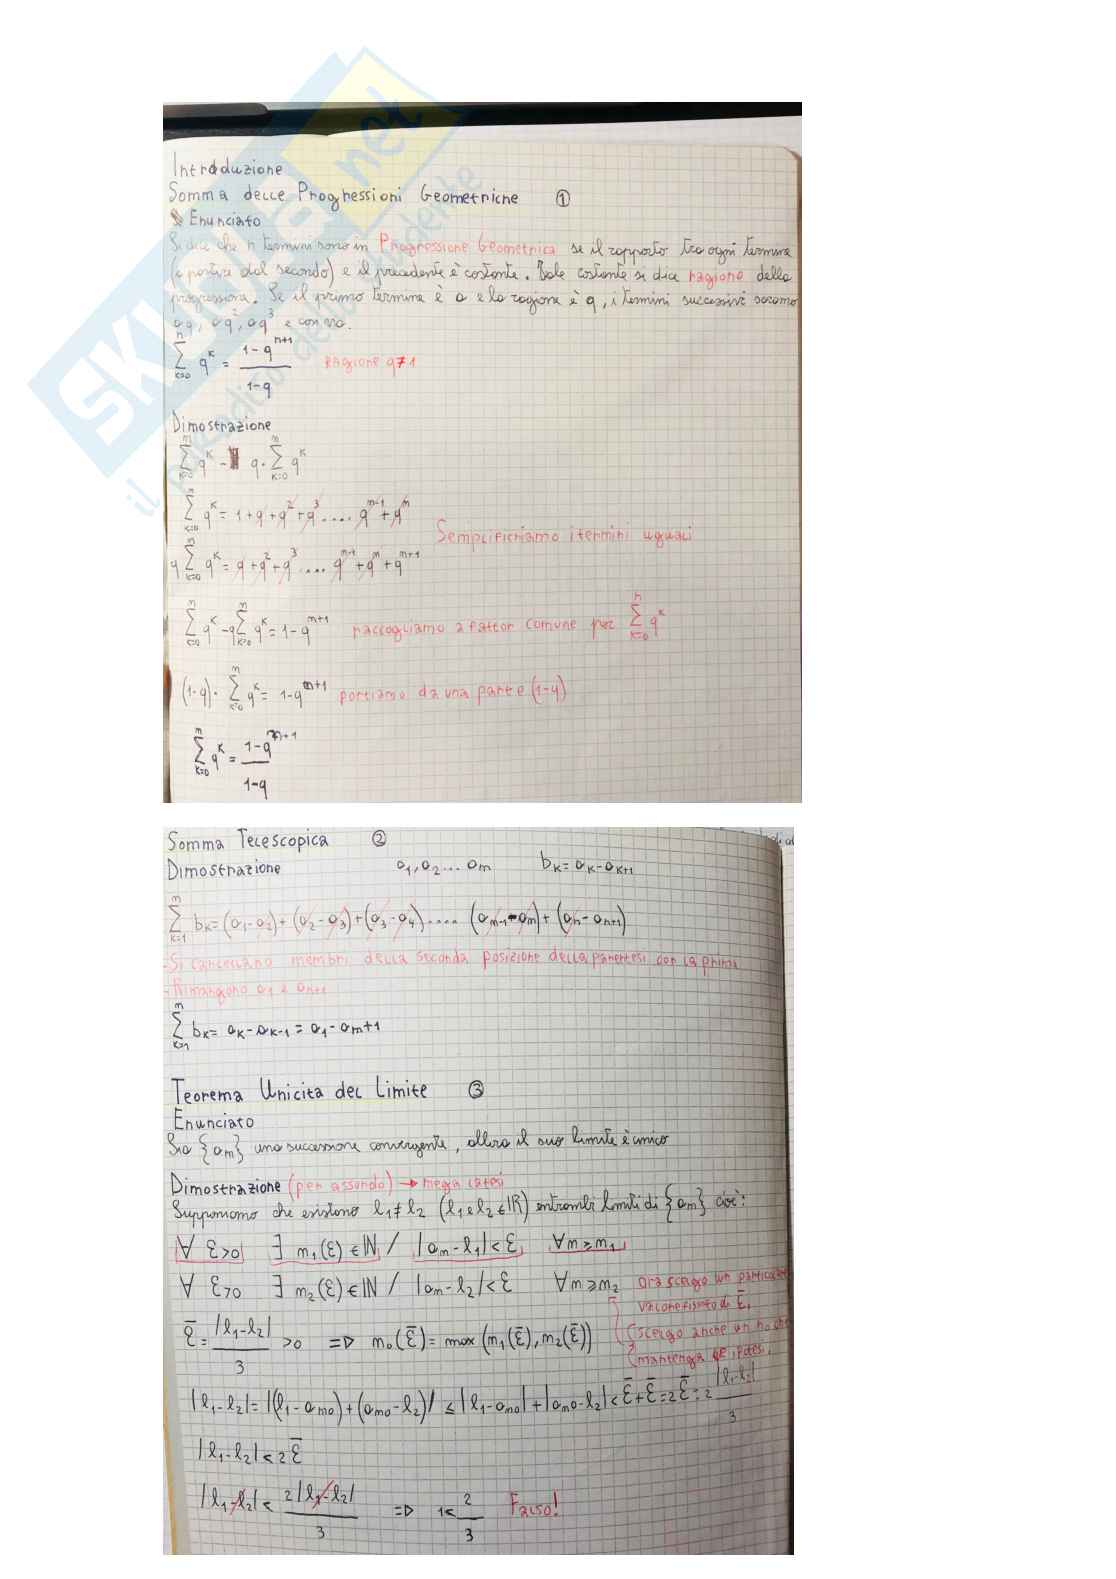 SKUOLA.net
il paradiso dello studente
Introduzione
Somma delle Progressioni Geometriche ①
Enunciato
Si dice che n termini sono in Progressione Geometrica se il rapporto tra ogni termine
(a partire dal secondo) e il precedente è costante. Tale costante si dice ragione della
progressione. Se il primo termine è a e la ragione è q, i termini successivi saranno
aq, aq², aq³ e con via.
∑_{k=0}^{n} q^k = (1-q^{n+1})/(1-q) Ragione q≠1
Dimostrazione
∑_{k=0}^{n} q^k - q·∑_{k=0}^{n} q^k
∑_{k=0}^{n} q^k = 1+q+q²+q³.... q^{n-1}+q^n
Semplifichiamo i termini uguali
q∑_{k=0}^{n} q^k = q+q²+q³.... q^{n-1}+q^n+q^{n+1}
∑_{k=0}^{n} q^k - q∑_{k=0}^{n} q^k = 1-q^{n+1} raccogliamo a fattor comune per ∑_{k=0}^{n} q^k
(1-q)·∑_{k=0}^{n} q^k = 1-q^{n+1} portiamo da una parte (1-q)
∑_{k=0}^{n} q^k = (1-q^{n+1})/(1-q)
Somma Telescopica ②
Dimostrazione a₁, a₂... aₙ b_k = a_k - a_{k+1}
∑_{k=1}^{n} b_k = (a₁-a₂)+(a₂-a₃)+(a₃-a₄).... (a_{n-1}-a_n)+(a_n-a_{n+1})
-Si cancellano membri della seconda posizione della parentesi con la prima
-Rimangono a₁ e a_{n+1}
∑_{k=1}^{n} b_k = a_k - a_{k-1} = a₁ - a_{n+1}
Teorema Unicita del Limite ③
Enunciato
Sia {aₙ} una successione convergente, allora il suo limite è unico
Dimostrazione (per assurdo) → nega la tesi
Supponiamo che esistono l₁≠l₂ (l₁ e l₂ ∈ ℝ) entrambi limiti di {aₙ} cioè:
∀ ε>0 ∃ n₁(ε) ∈ ℕ / |aₙ-l₁|<ε ∀n≥n₁
∀ ε>0 ∃ n₂(ε) ∈ ℕ / |aₙ-l₂|<ε ∀n≥n₂ Ora scelgo un particolare
valore fissato di ε̄,
ε̄ = |l₁-l₂|/3 >0 => n₀(ε̄) = max(n₁(ε̄), n₂(ε̄)) scelgo anche un n₀ che
mantenga le ipotesi,
|l₁-l₂| = |(l₁-a_{n0})+(a_{n0}-l₂)| ≤ |l₁-a_{n0}|+|a_{n0}-l₂| < ε̄+ε̄ = 2ε̄ = 2 |l₁-l₂|/3
|l₁-l₂| < 2ε̄
|l₁-l₂| < 2|l₁-l₂|/3 => 1 < 2/3 Falso!